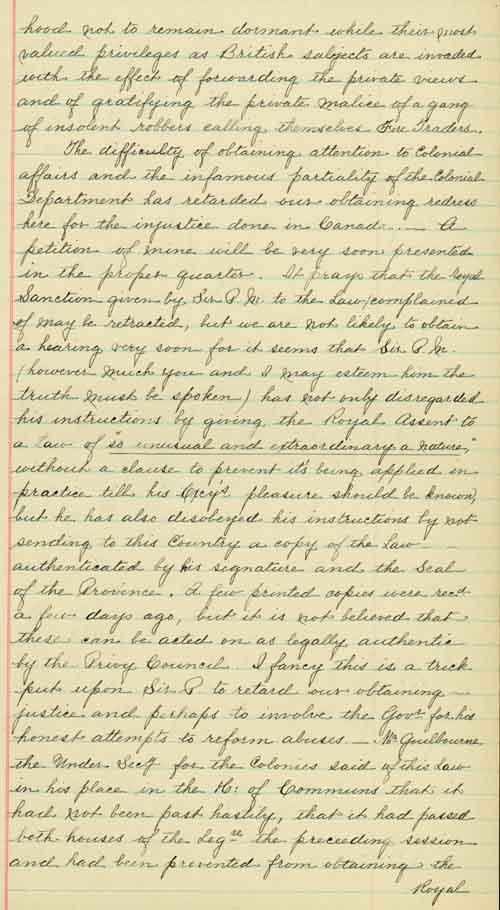 hood not to remain dormant while their most
valued privileges as British subjects are invaded
with the effect of forwarding the private views
and of gratifying the private malice of a gang
of insolent robbers calling themselves Fur Traders.
The difficulty of obtaining attention to Colonial
affairs and the infamous partiality of the Colonial
Department has retarded our obtaining redress
here for the injustice done in Canada. — A
petition of mine will be very soon presented
in the proper quarter. It prays that the Royal
Sanction given by Sir P. M. to the Law complained
of may be retracted, but we are not likely to obtain
a hearing very soon for it seems that Sir P. M.
(however much you and I may esteem him the
truth must be spoken) has not only disregarded
his instructions by giving the Royal Assent to
a law of "so unusual and extraordinary a nature,"
without a clause to prevent it's being applied in
practice till his pleasure should be known,
but he has also disobeyed his instructions by not
sending to this Country a copy of the Law
authenticated by his signature and the Seal
of the Province. A few printed copies were recd
a few days ago, but it is not believed that
these can be acted on as legally authentic
by the Privy Council. I fancy this is a trick
put upon Sir P. to retard our obtaining
justice and perhaps to involve the Govr for his
honest attempts to reform abuses — Mr Guilbourne
the Under Secy for the Colonies said of this Law
in his place in the H: of Communs that it
had not been past hastily, that it had passed
both houses of the Legre the preceeding session
and had been prevented from obtaining the
Royal